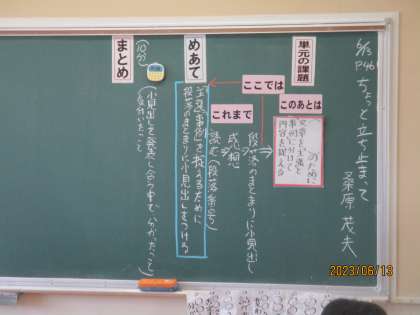 6/13
P46
ちょっと立ち止まって
桑原茂夫
単元の課題
のために
文章を主張と
事例に分けて
内容を捉える
このあとは
ここでは
これまで
段落のまとまりに小見出し
感想
読む(段落番号)
めあて
「主張」「事例」を捉えるために
段落のまとまりに小見出しをつける
まとめ
(10分)
(小見出しで発表し合う中で分かったこと)
2023/06/13